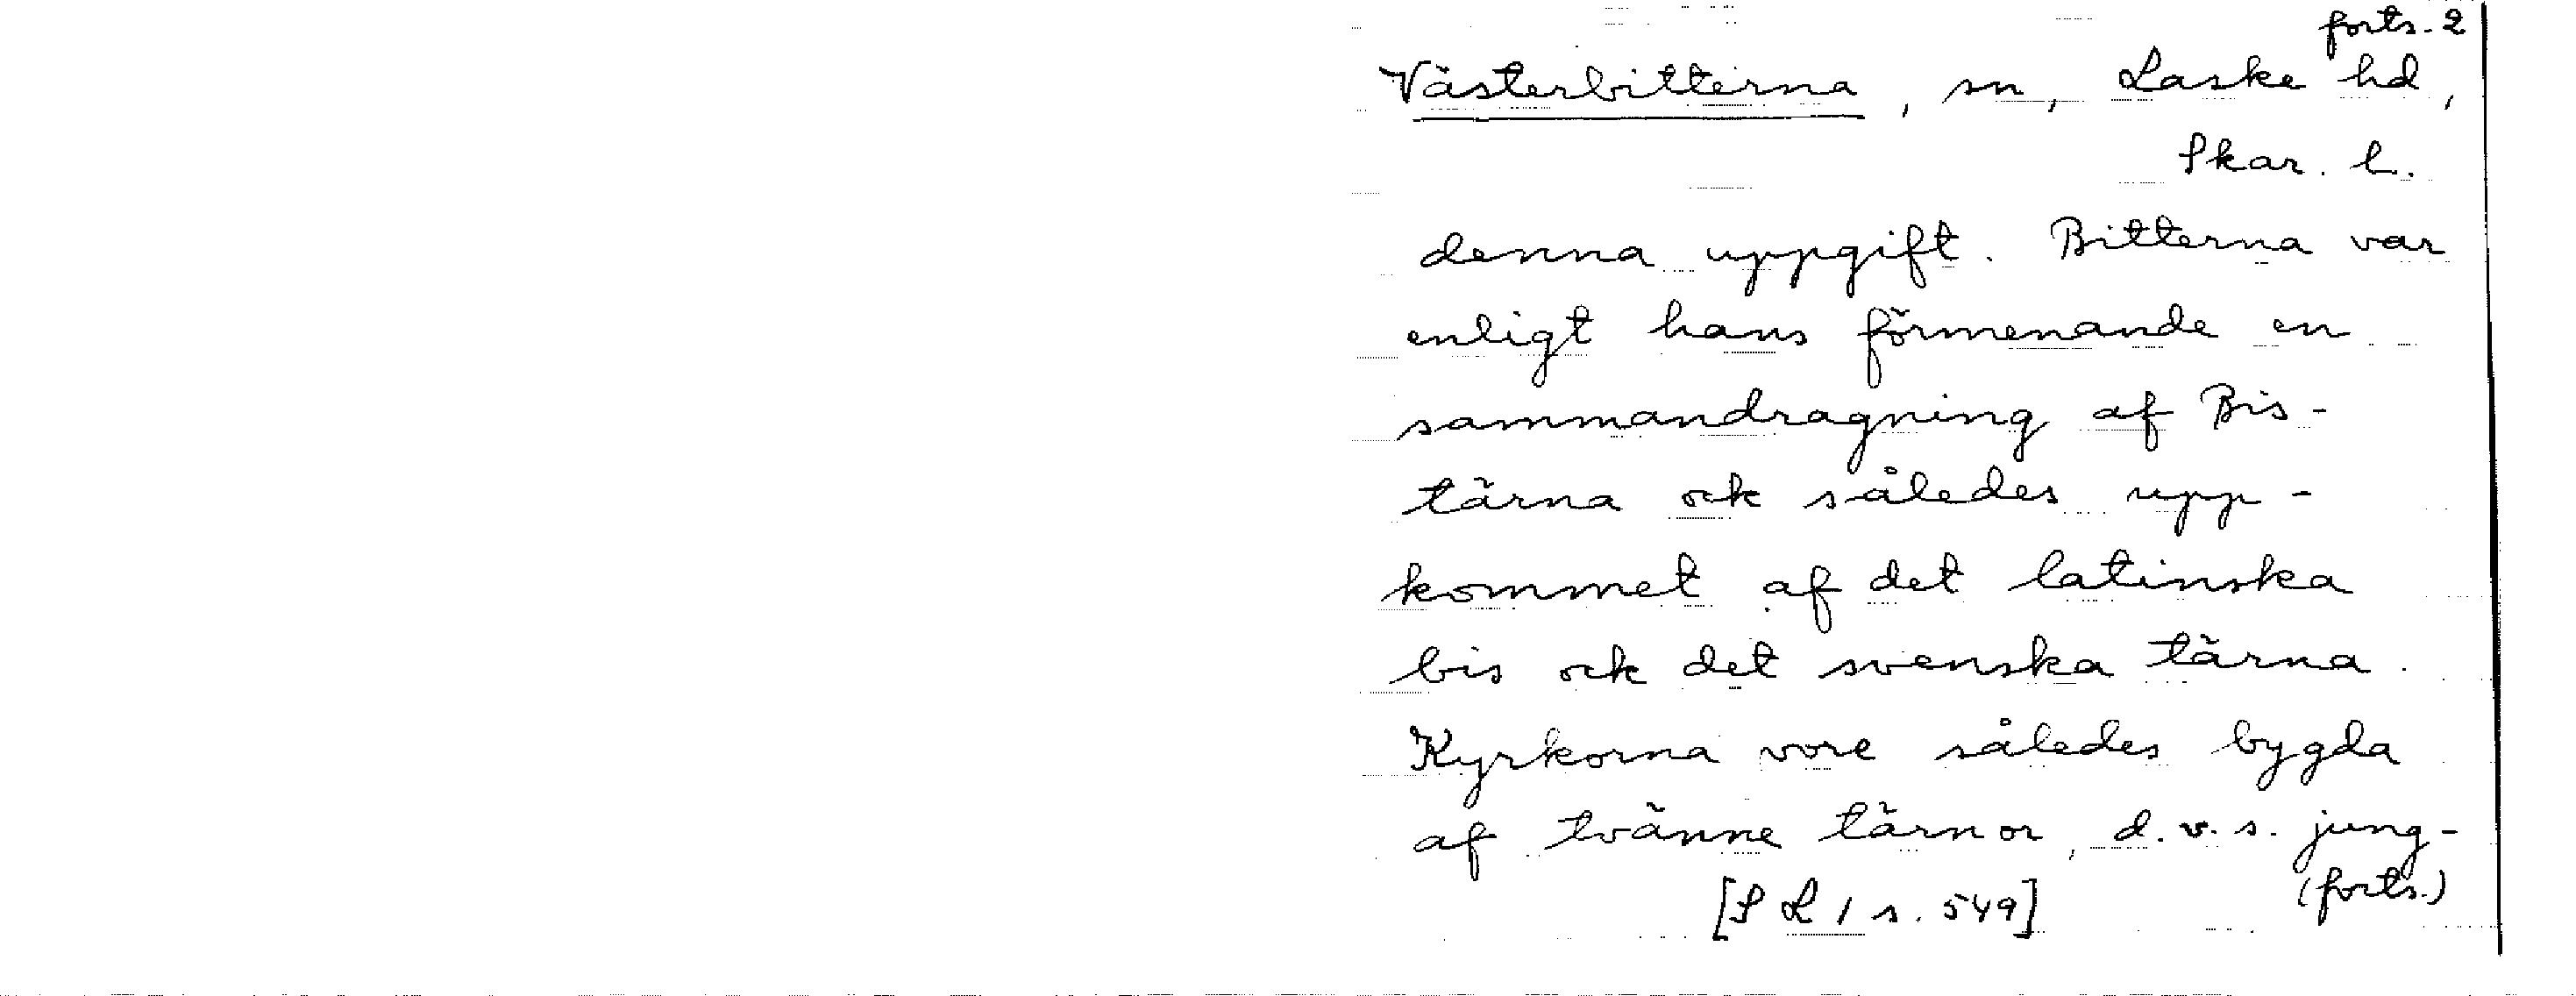 forts. 2
Västerbitterna, sn, Laske hd,
Skar. l.
denna uppgift. Bitterna var
enligt hans förmenande en
sammandragning af Bis-
tärna ock således upp-
kommet af det latinska
bis ock det svenska tärna.
Kyrkorna vore således bygda
af tvänne tärnor, d.v.s. jung-
(forts.)
[S L 1 s. 549]